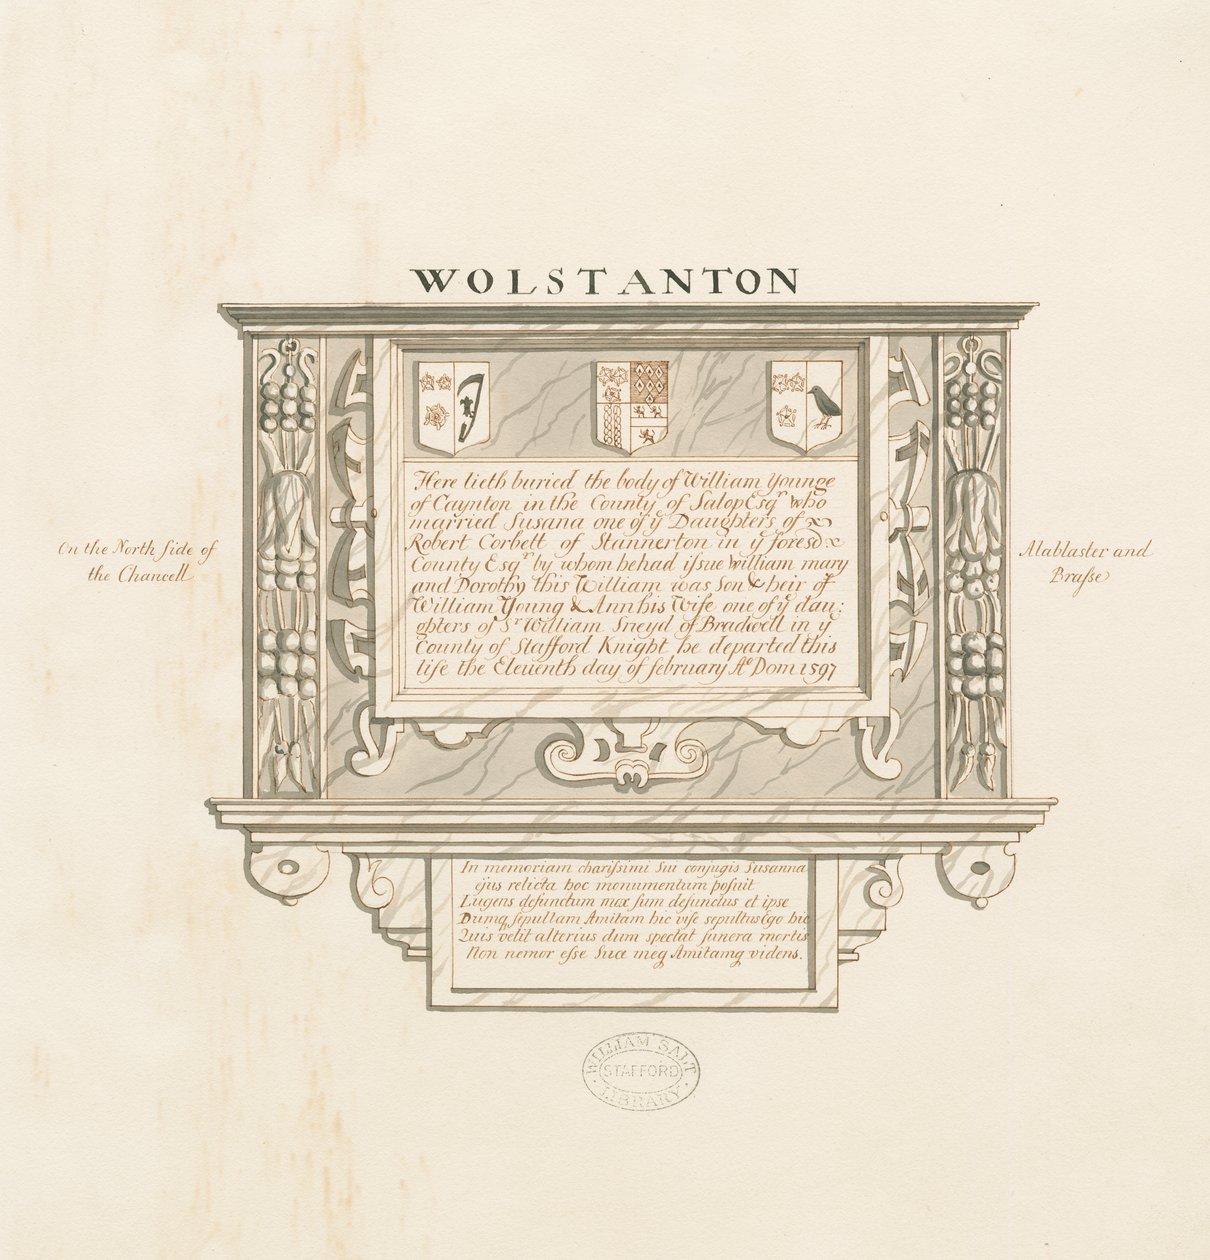 WOLSTANTON
Here lieth buried the body of William Younge
of Caynton in the County of Salop Esqr who
married Susana one of ẏ Daughters of
Robert Corbett of Stannerton in ẏ foresd
County Esqr by whom he had issue William mary
and Dorothy this William was Son & heir of
William Young & Ann his Wife one of ẏ dau:
ghters of Sr William Sneyd of Bradwell in ẏ
County of Stafford Knight he departed this
life the Eleuenth day of february Ao Dom 1597
On the North side of
the Chancell
Alablaster and
Brasse
In memoriam charissimi Sui conjugis Susanna
ejus relicta hoc monumentum posuit
Lugens defunctum mox sum defunctus et ipse
Dumq sepultam Amitam hic vise sepultus Ego hic
Quis velit alterius dum spectat funera mortis
Non nemor esse Suæ meq Amitamq videns.
WILLIAM SALT
STAFFORD
LIBRARY